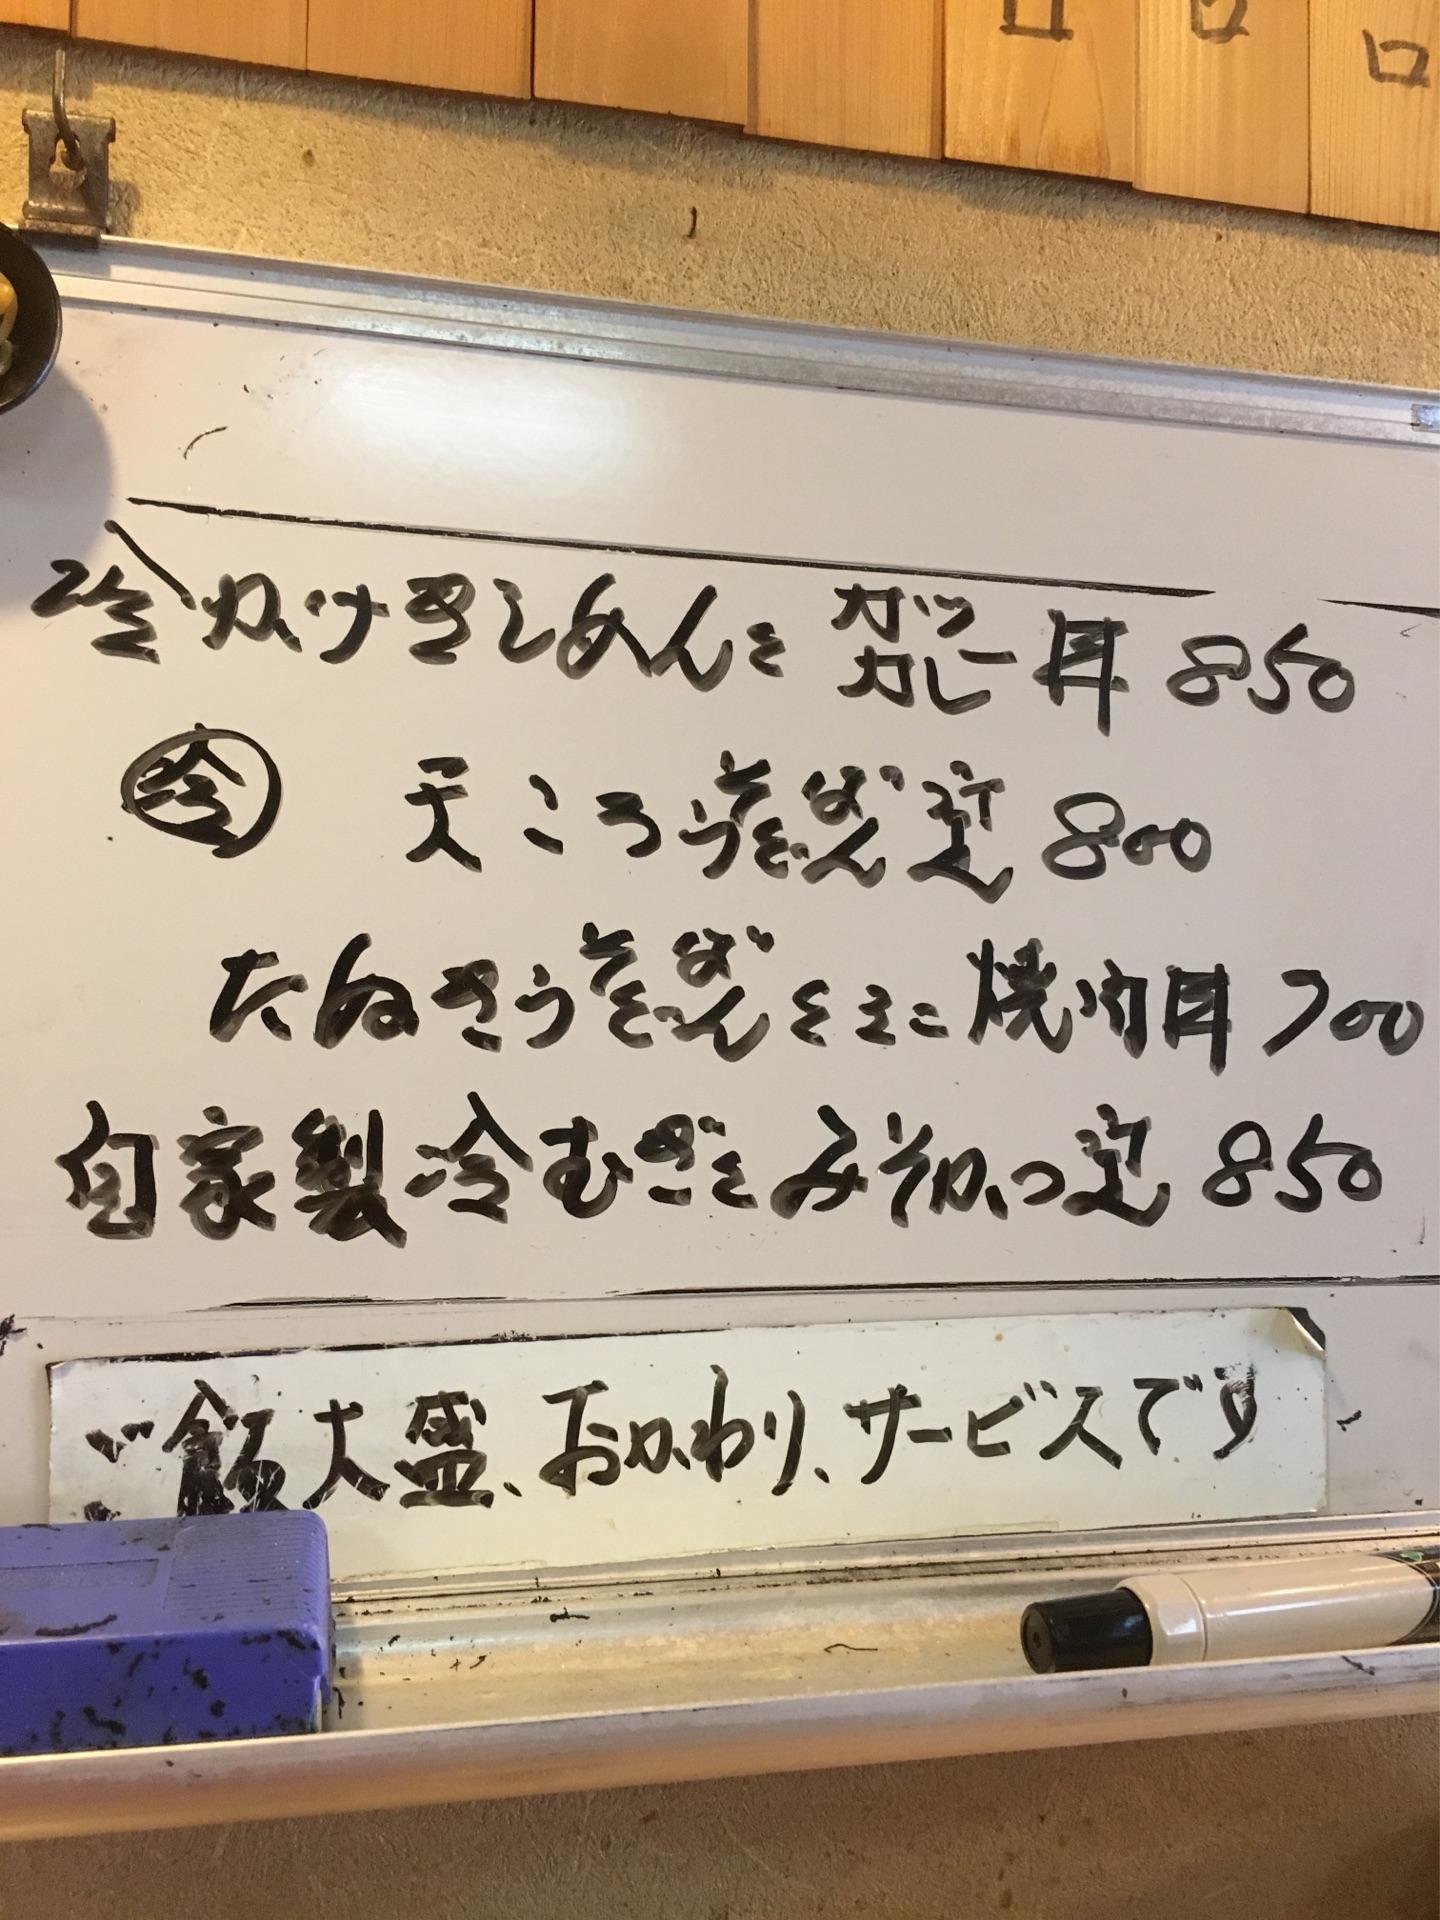 ロ ロ ロ
冷かけきしめんとカツカレー丼 850
冷 天ころうどんそば定 800
たぬきうどんそばとミニ焼肉丼 700
自家製冷むぎとみそかつ定 850
ご飯大盛、おかわり、サービスです